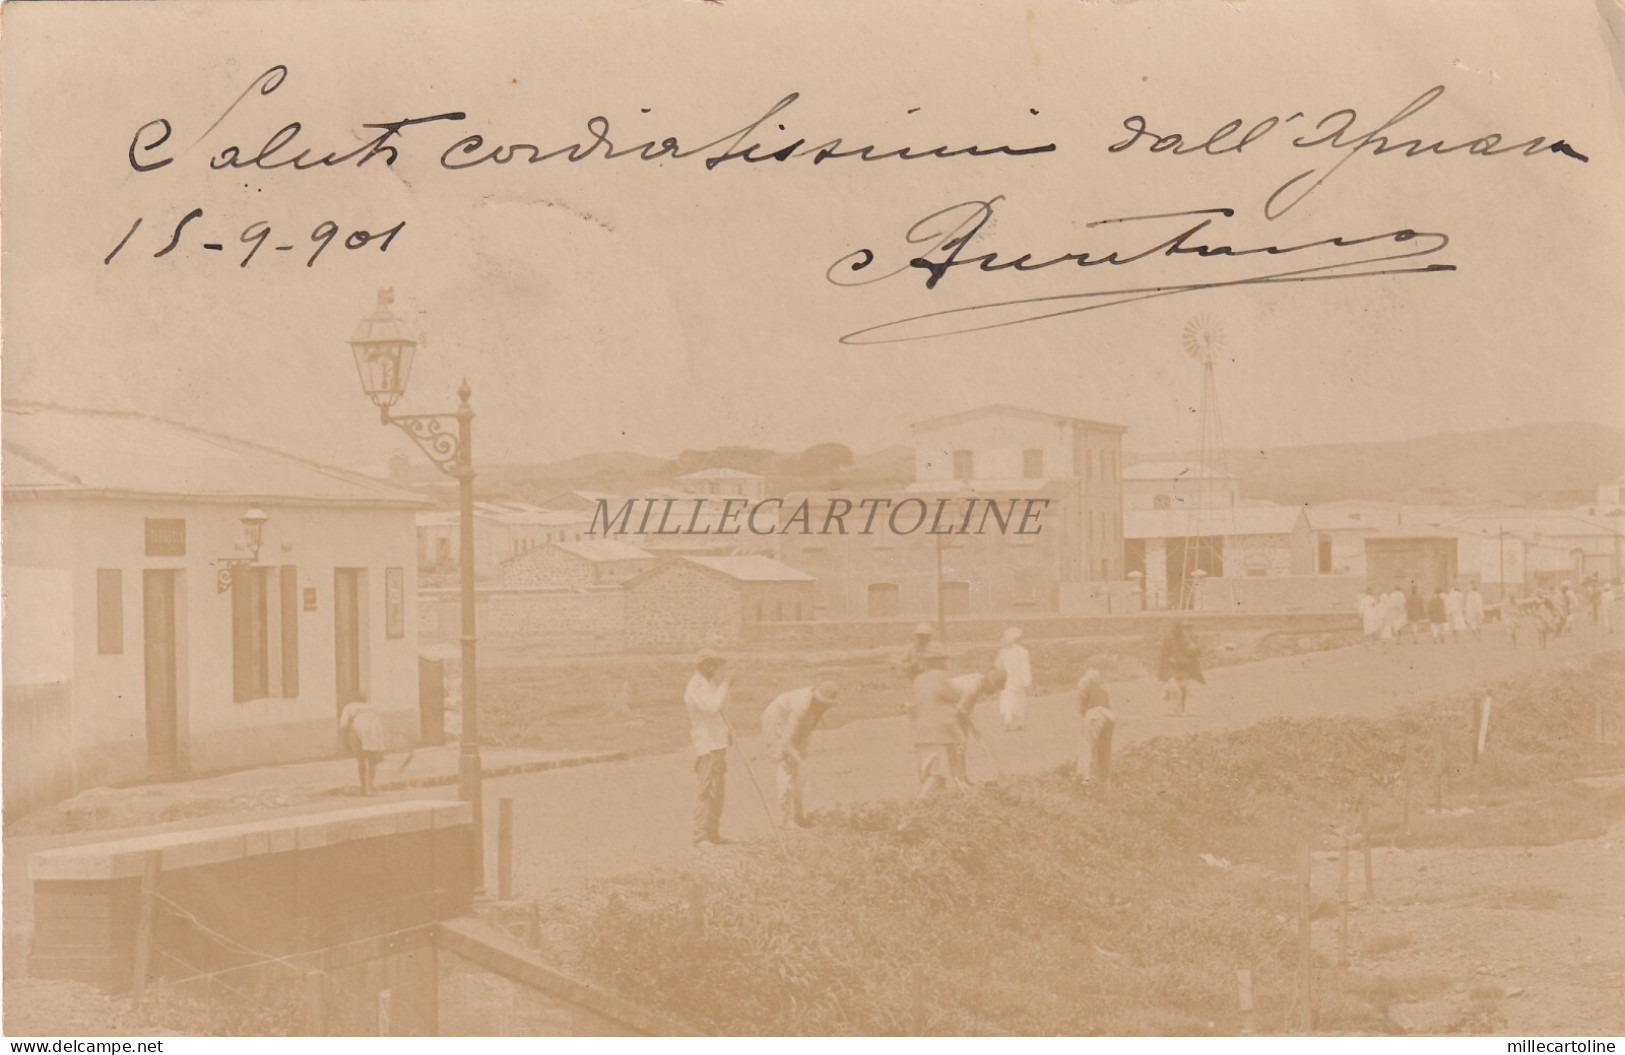 Saluti cordialissimi dall'Asmara
15-9-901
MILLECARTOLINE
www.delcampe.net
millecartoline